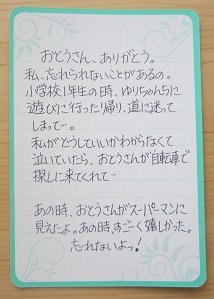 おとうさん、ありがとう。
私、忘れられないことがあるの。
小学校1年生の時、ゆりちゃんちに
遊びに行った帰り、道に迷って
しまって…。
私がどうしていいかわからなくて
泣いていたら、おとうさんが自転車で
探しに来てくれて…
あの時、おとうさんがスーパーマンに
見えたよ。あの時、すごーく嬉しかった。
忘れないよっ!